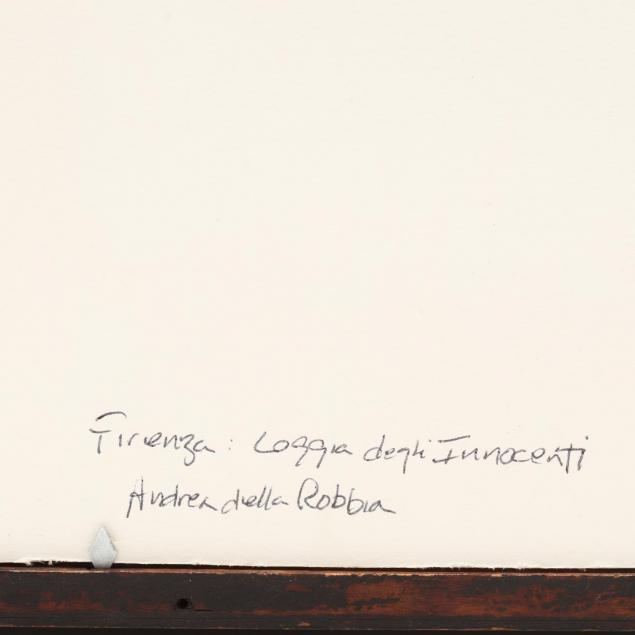 Firenza: Loggia degli Innocenti
Andrea della Robbia